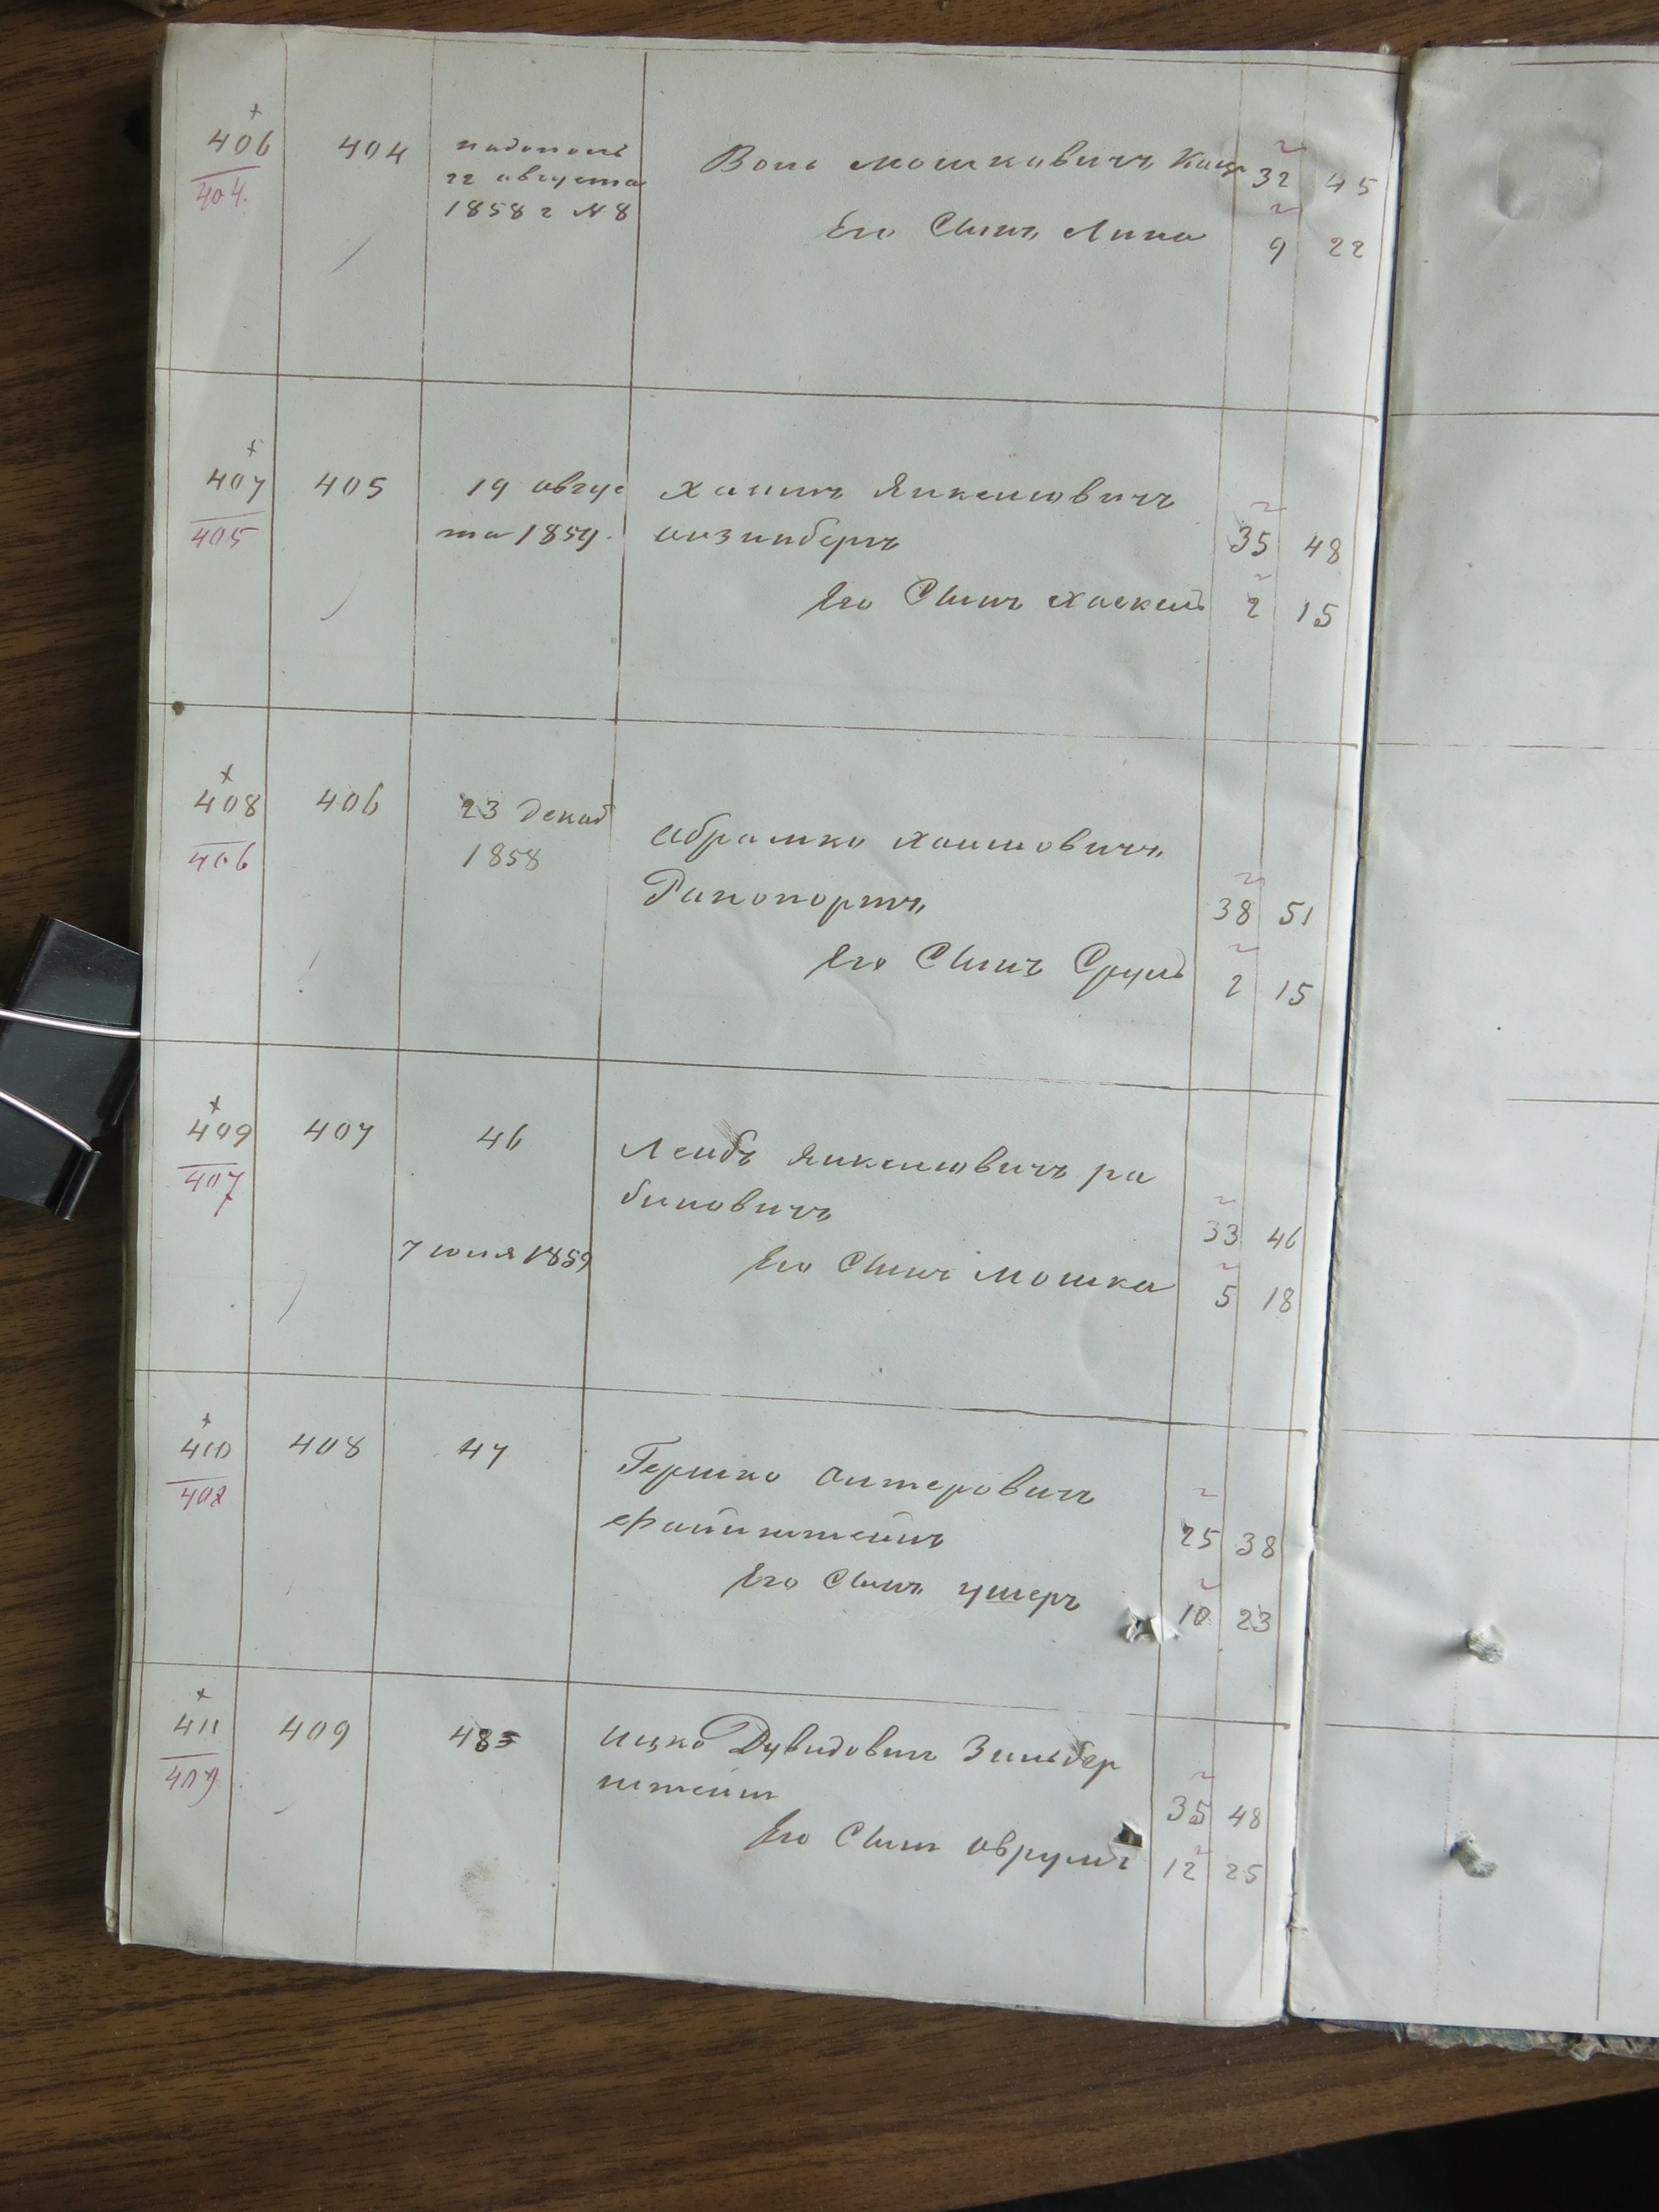 406 404 22 августа Мошковичъ Кацъ 32 45
404. 1858 г № 8
Его Сынъ Липа 9 22
407 405 19 авгус Хаимъ Янкелювичъ
405 та 1859. 35 48
Его Сынъ Хаскель 2 15
408 406 23 декаб Абрамко Хаимовичъ
406 1858 Рапопортъ 38 51
Его Сынъ Сруль 2 15
409 407 46 Лейбъ Янкелювичъ ра
407 биновичъ 33 46
7 июля 1859 Его Сынъ Мошка 5 18
410 408 47 Гершко Алтеровичъ
408 Файнштейнъ 25 38
Его Сынъ Ушеръ 10 23
411 409 48 Ицко Дувидович Зильбер
409 штейн 35 48
Его Сын Аврумъ 12 25